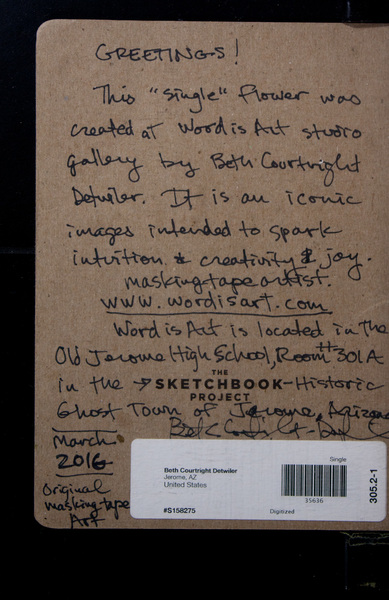 GREETINGS!
This "single" flower was
created at Word is Art studio
gallery by Beth Courtright
Detwiler. It is an iconic
images intended to spark
intuition & creativity & joy.
masking-tape artist.
www.wordisart.com
Word is Art is located in the
Old Jerome High School, Room #301A
THE
in the → SKETCHBOOK - Historic
PROJECT
Ghost Town of Jerome, Arizona
March
2016
Original
masking-tape
Art
Single
Beth Courtright Detwiler
Jerome, AZ
United States
35636
#S158275
Digitized
305.2-1